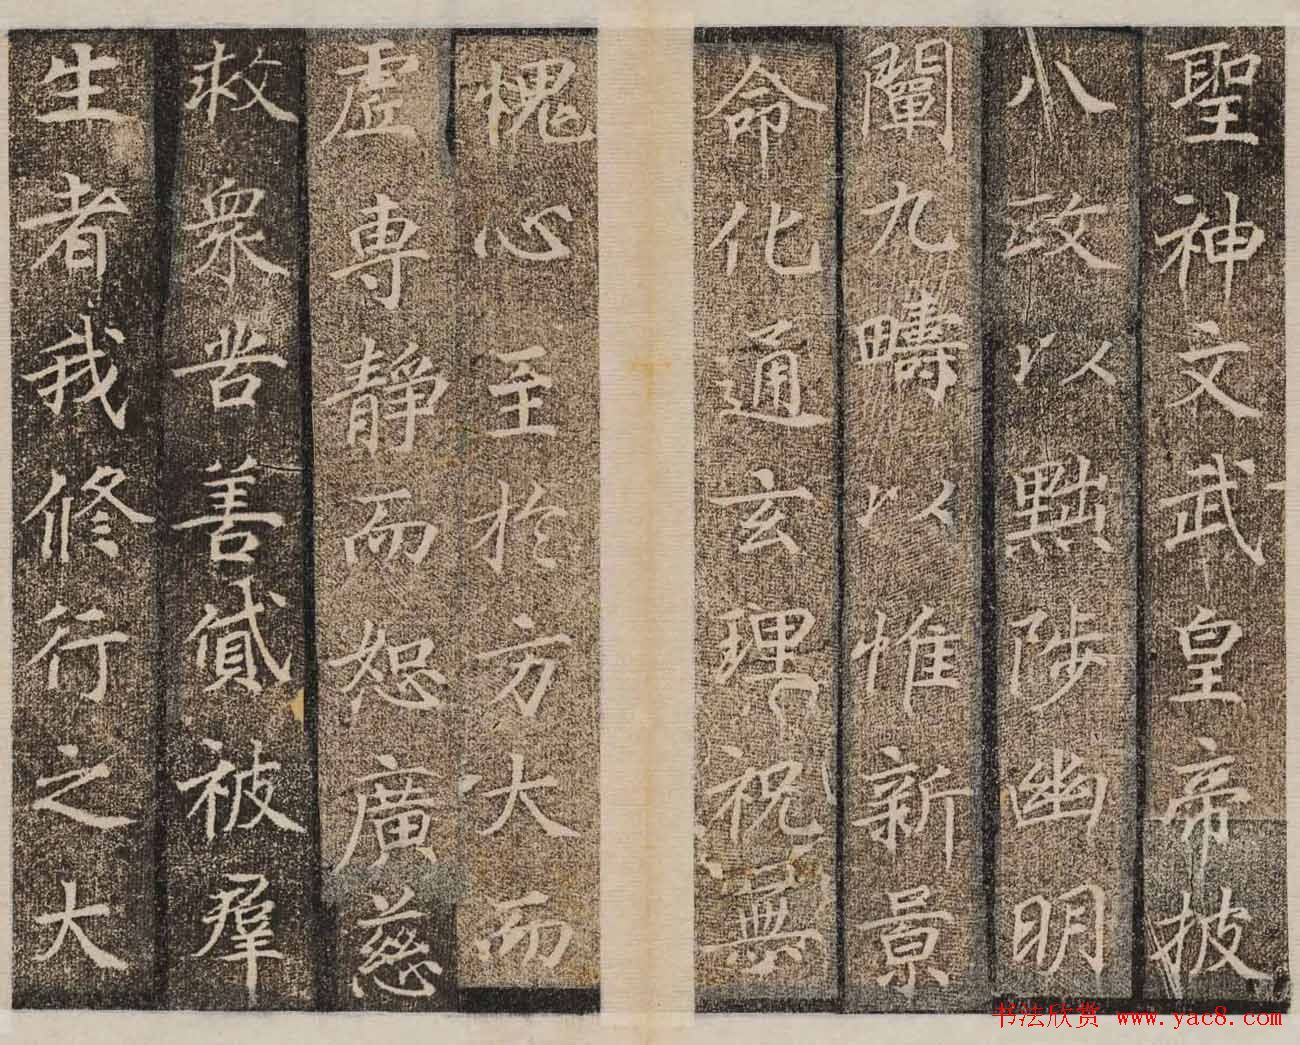 聖神文武皇帝披
八政以黜陟幽明
闡九疇以惟新景
命化通玄理祝無
愧心至於方大而
虛専靜而恕廣慈
救衆苦善貸被群
生者我修行之大
书法欣赏 www.yac8.com